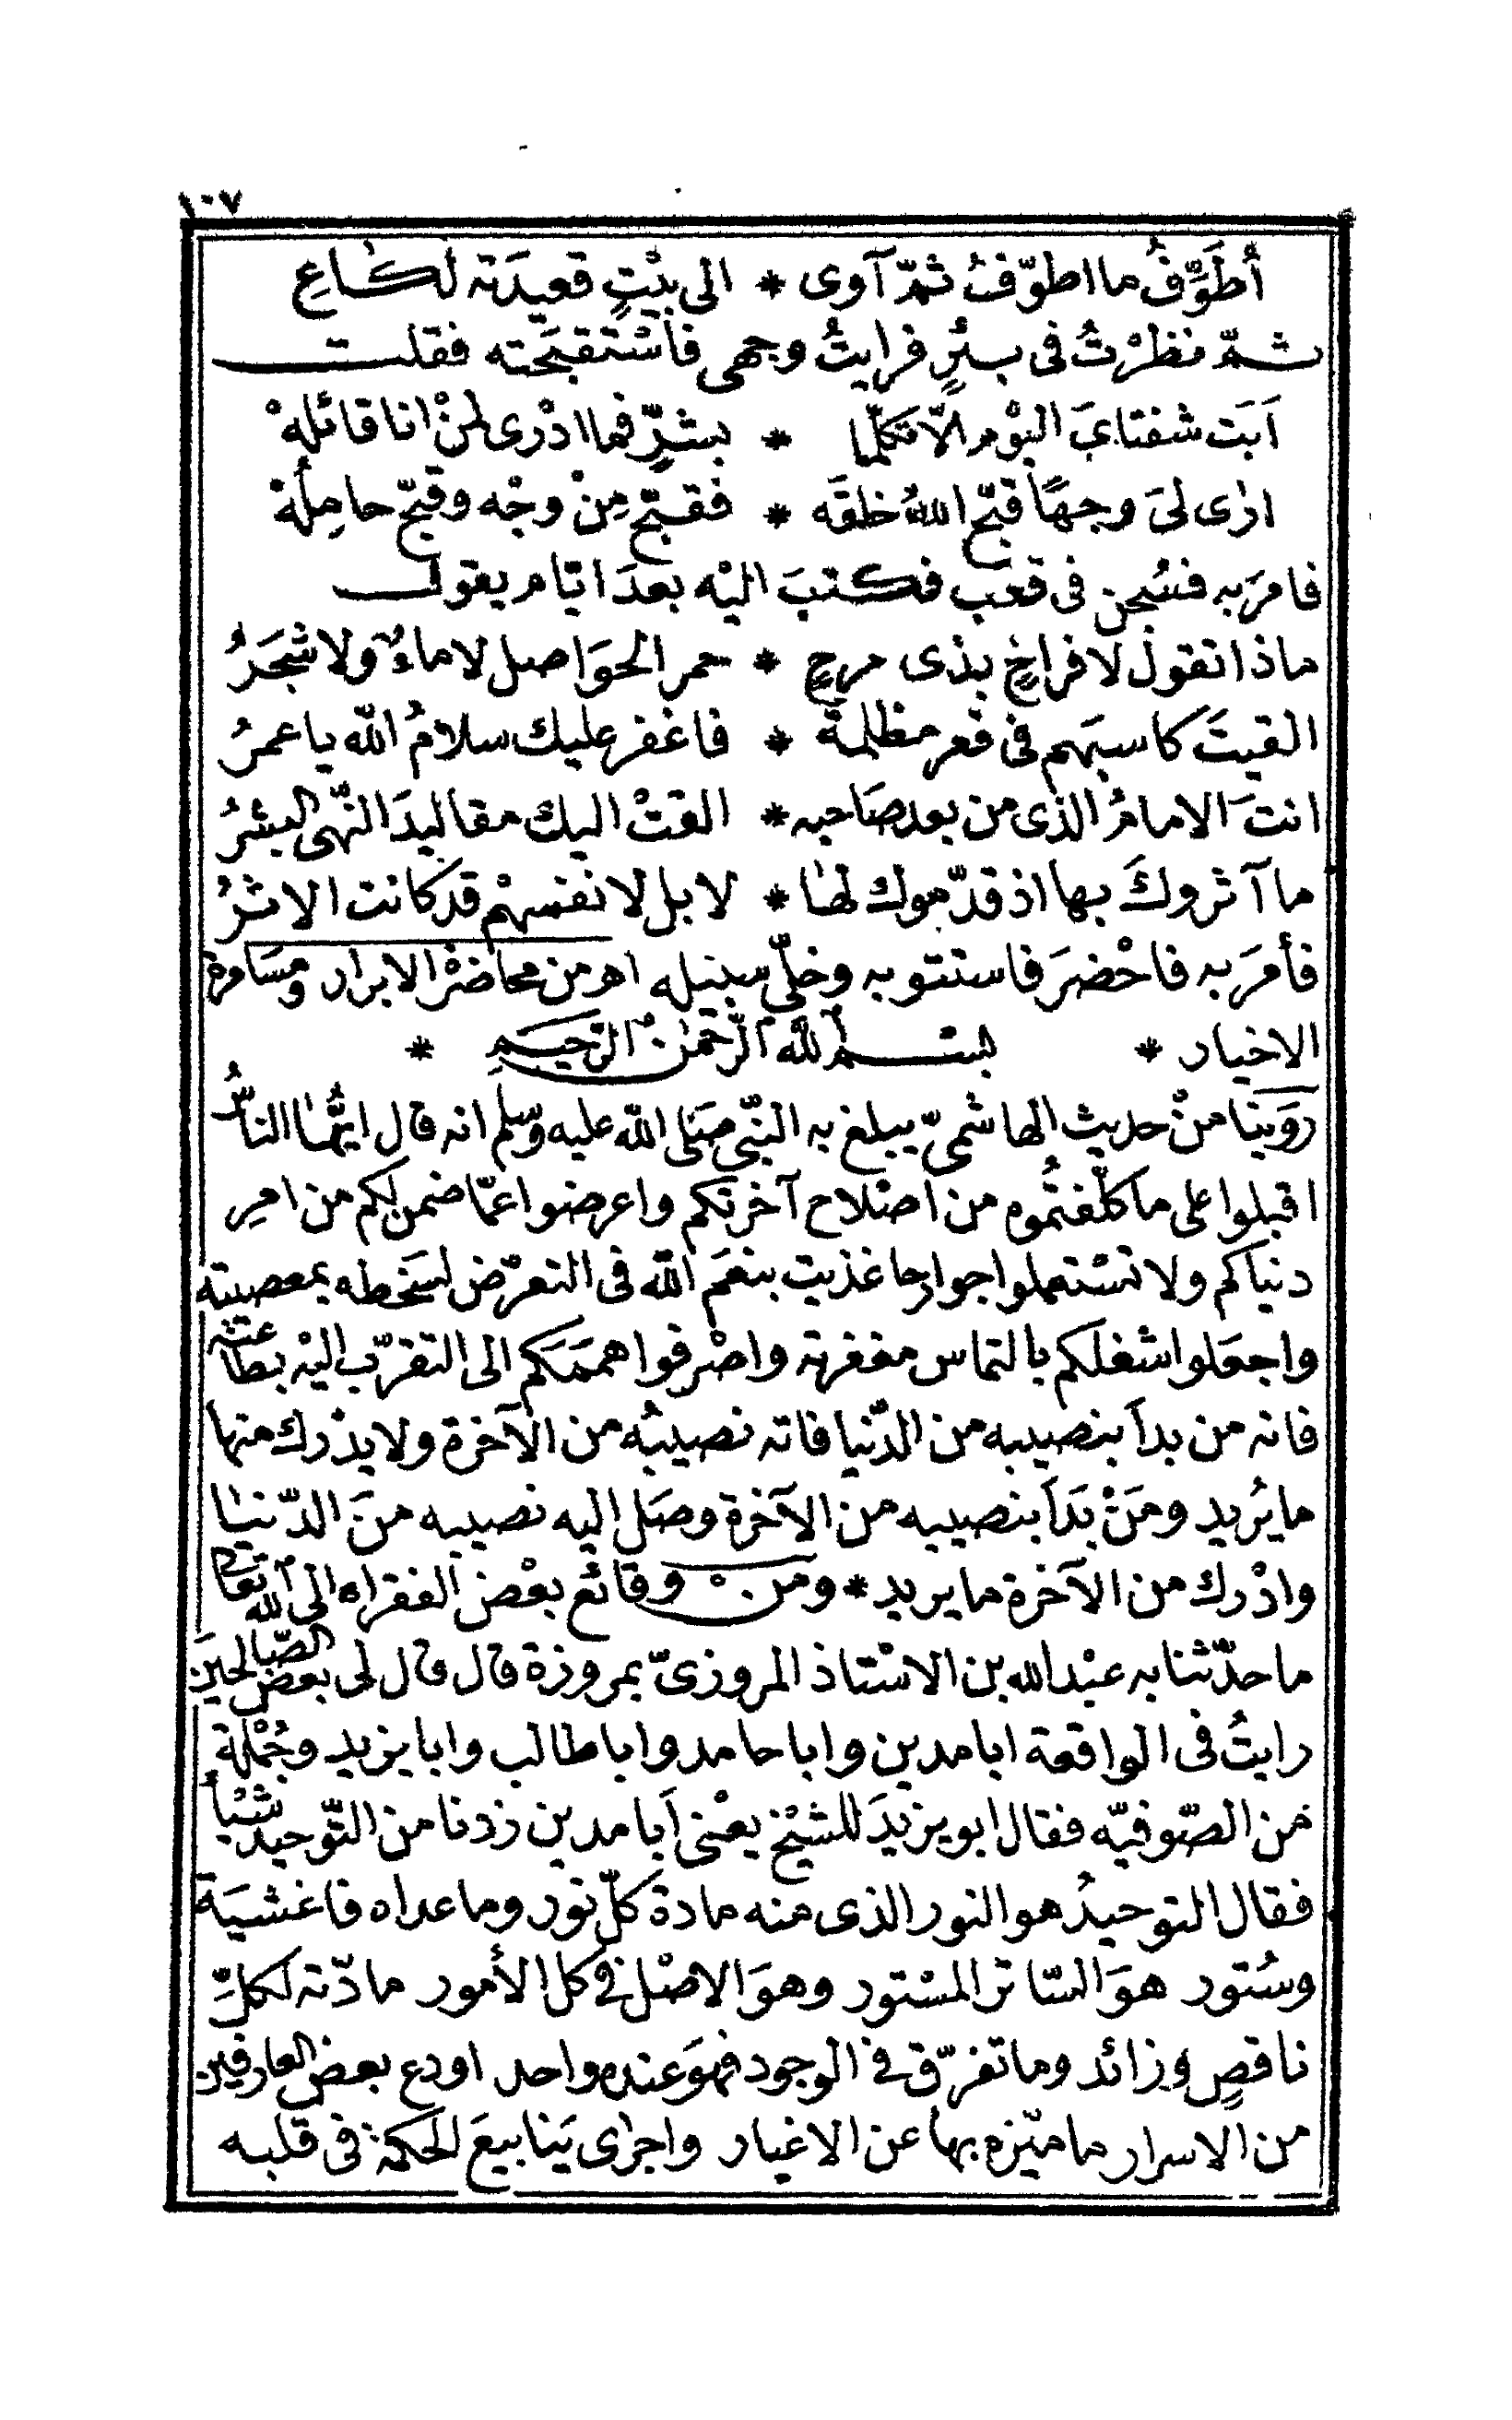 ١٠٧
أُطَوِّفُ ما اطوّفُ ثمّ آوى * الى بيْتٍ قعيدَته لكاعِ
ثمّ نظرْتُ فى بئرٍ فرايتُ وجهى فاسْتقبَحته فقلت
اَبَت شفتاىَ اليوْم الّا تكلّما * بشرٍّ فما ادْرى لمنْ انا قائلهْ
ارٰى لىَ وجهًا قبّح اللهُ خلقَه * فقبّح مِنْ وجْه وقبّح حامِلُهْ
فامرَ به فسُجن فى قعب فكتبَ اليْه بعدَ ايّام يقول
ماذا تقولُ لافراخٍ بذى مرحٍ * حمر الحوَاصل لا ماءٌ ولا شجَرُ
القيتَ كاسبَهم فى قعر مظلمة * فاغفر عليك سلامُ الله يا عمرُ
انتَ الامامُ الذى من بعد صَاحبه * القتْ اليك مقاليدَ النّهى البشرُ
ما آثروكَ بها اذ قدّموك لهٰا * لا بل لانفسهْم قد كانت الاثرُ
فأمرَ به فاحْضرَ فاستتوبه وخلّى سبيله اهـ من محاضرْ الابرار ومسَامرة
الاخيار * بسم الله الرّحمٰن الرّحيم *
روَينا منْ حديث الهاشمىّ يبلغ به النبّى صَلى الله عليه وسّلم انه قال ايُّهٰا الناسُ
اقبلوا على ما كلّفتُموه من اصْلاح آخرتكم واعرضوا عمّا ضمن لكم من امرِ
دنياكم ولا تسْتعملوا جوارحا غذيت بنعَم الله فى التعرّض لسَخطه بمعصيته
واجعَلوا شغلكم بالتماس مغفرته واصْرفوا هممَكم الى التقرّب اليْه بطاعته
فانه من بدأ بنصيبه من الدّنيا فاته نصيبُه من الآخرة ولا يدْرك منها
ما يُريد ومَنْ بَدَأ بنصيبه من الآخرة وصَل اليه نصيبه منَ الدّنيٰا
وادْرك من الآخرة ما يريد * ومن وقائع بعْض الفقراء الى الله تعالى
ما حدّثنا به عبْد الله بن الاسْتاذ المروزىّ بمروزة قال قال لى بعض الصّالحين
رايتُ فى الواقعة ابا مدين وابا حامد وابا طالب وابا يزيد وجُمْلة
من الصّوفيّه فقال ابو يزيدَ للشيْخ يعْنى اَبا مدين زدنا من التّوحيد شيْأً
فقال التوحيدُ هو النور الذى منه مادة كلّ نور وما عداه فاغشيَة
وسُتور هوَ السّاتر المسْتور وهوَ الاصْل فى كل الأمور مادّته لكلِّ
ناقصٍ وزائد وما تفرّق فى الوجود فهوَ عنده واحد اودع بعض العارفين
من الاسرار ما ميّزه بها عن الاغيار واجرٰى يَنابيعَ الحكمة فى قلبه